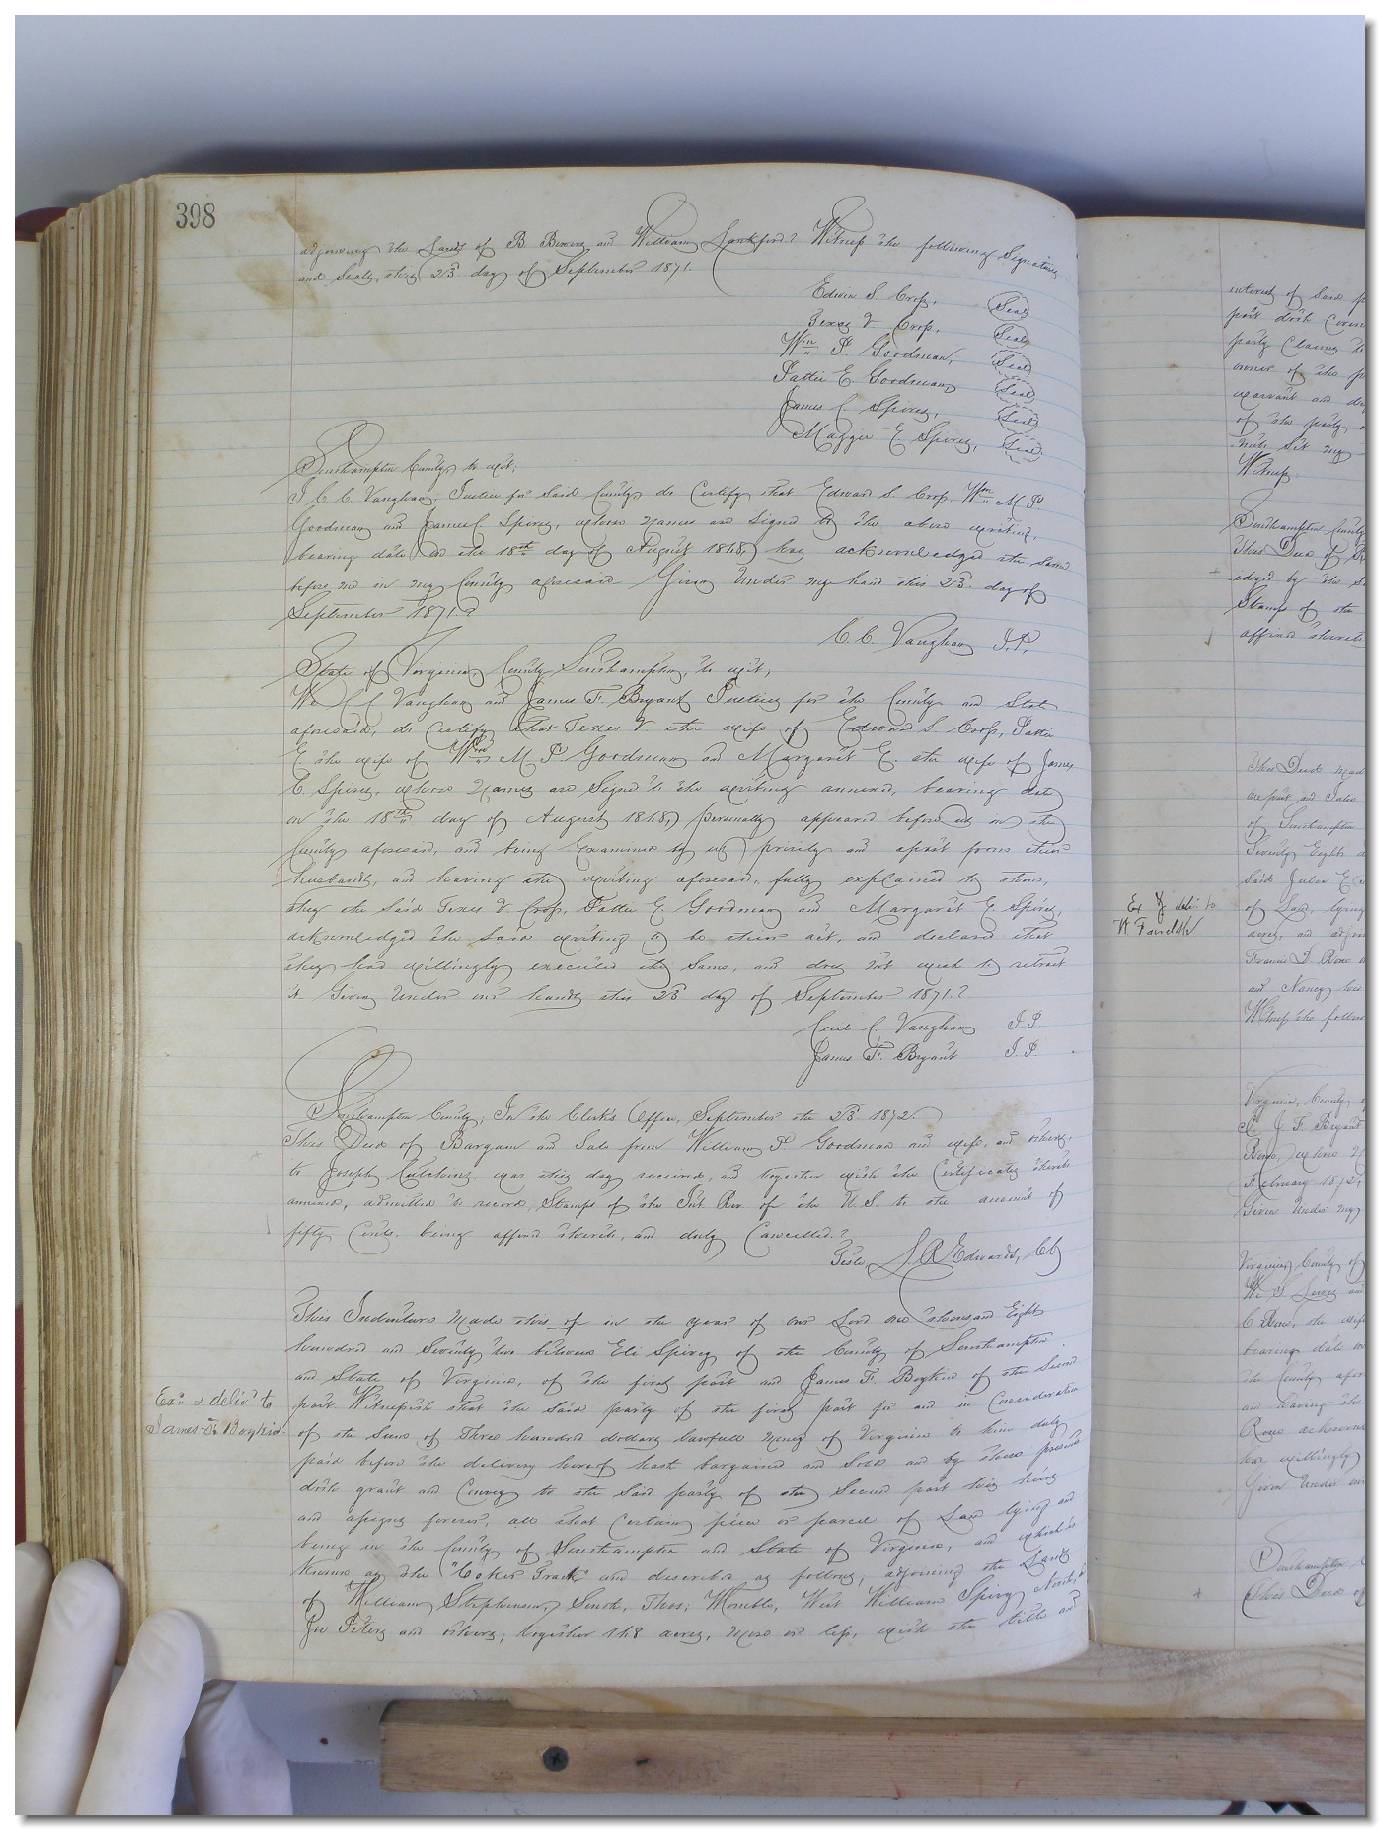 398
adjoining the Lands of B. Binns and William Lankford? Witness the following Signatures
and Seals, this 23 day of September 1871.
Edwin S. Cross, (Seal)
Texas V Cross, (Seal)
Wm P. Goodman, (Seal)
Pattie E. Goodman, (Seal)
James C. Spivey, (Seal)
Maggie E. Spivey, (Seal)
Southampton County, to wit;
I C. C. Vaughan, Justice for said County do Certify that Edward S. Cross, Wm M. P.
Goodman and James C Spivey, whose Names are Signed to the above writing,
bearing date on the 18th day of August 1868, has acknowledged the same
before me in my County aforesaid Given Under my hand this 23. day of
September 1871.?
C. C. Vaughan J.P.
State of Virginia, County Southampton, to wit,
We C C Vaughan and James F. Bryant Justices for the County and State
aforesaid, do Certify that Texas V. the wife of Edward S. Cross, Pattie
E. the wife of Wm M P Goodman and Margaret E. the wife of James
C Spivey, whose Names are Signed to the writing annexed, bearing date
on the 18th day of August 1868, personally appeared before us in the
County aforesaid, and being Examined by us, privily and apart from their
husbands, and having the writing aforesaid, fully explained to them,
they the Said Texas V. Cross, Pattie E. Goodman and Margaret E. Spivey,
acknowledged the Said writing to be their act, and declared that
they had willingly executed the Same, and does not wish to retract
it Given Under our hands this 23 day of September 1871.?
Cecil C. Vaughan J.P.
James F. Bryant J.P.
Southampton County; In the Clerk's Office, September the 23 1872.
This Deed of Bargain and Sale from William P. Goodman and wife, and others,
to Joseph Cutchins was this day received, and together with the Certificates thereto
annexed, admitted to record, Stamps of the Int. Rev. of the U. S. to the amount of
fifty Cents, being affixed thereto, and duly Cancelled.?
Teste, L R Edwards, Clk
This Indenture Made this of in the year of our Lord one thousand Eight
hundred and Seventy two between Eli Spivey of the County of Southampton
and State of Virginia, of the first part and James F. Boykin of the Second
part Witnesseth that the Said party of the first part for and in Consideration
Exd & delivd to
James F. Boykin.
of the Sum of Three hundred dollars lawfull Money of Virginia to him duly
paid before the delivery hereof hath bargained and Sold and by these presents
doth grant and Convey to the Said party of the Second part his heirs
and assigns forever, all that Certain piece or parcel of Land lying and
being in the County of Southampton and State of Virginia, and which is
Known as the "Coker Tract" and described as follows, adjoining the Lands
of William Stephenson, South, Thos; Womble, West William Spivey North, &
Joe Peters and others, together 148 acres, More or less, with the title and
interest of Said
part doth
party Claims
owner of the
warrant and
of the party,
Witness
Southampton County
This Deed of
edged by the
Stamps of the
affixed thereto
This Deed made
of Southampton
Seventy Eight
Said Julia E
Ex & deliv. to
of Land, lying
acres, and adjoin
Francis D. Rose
and Nancy
Witness the follow
Virginia, County of
I J. F. Bryant
Rose, whose N
February 1872,
Given Under my
Virginia, County of
We
C Rose, the wife
bearing date
the County afor
and having the
Rose acknow
has willingly
Given Under our
Southampton
This Deed of